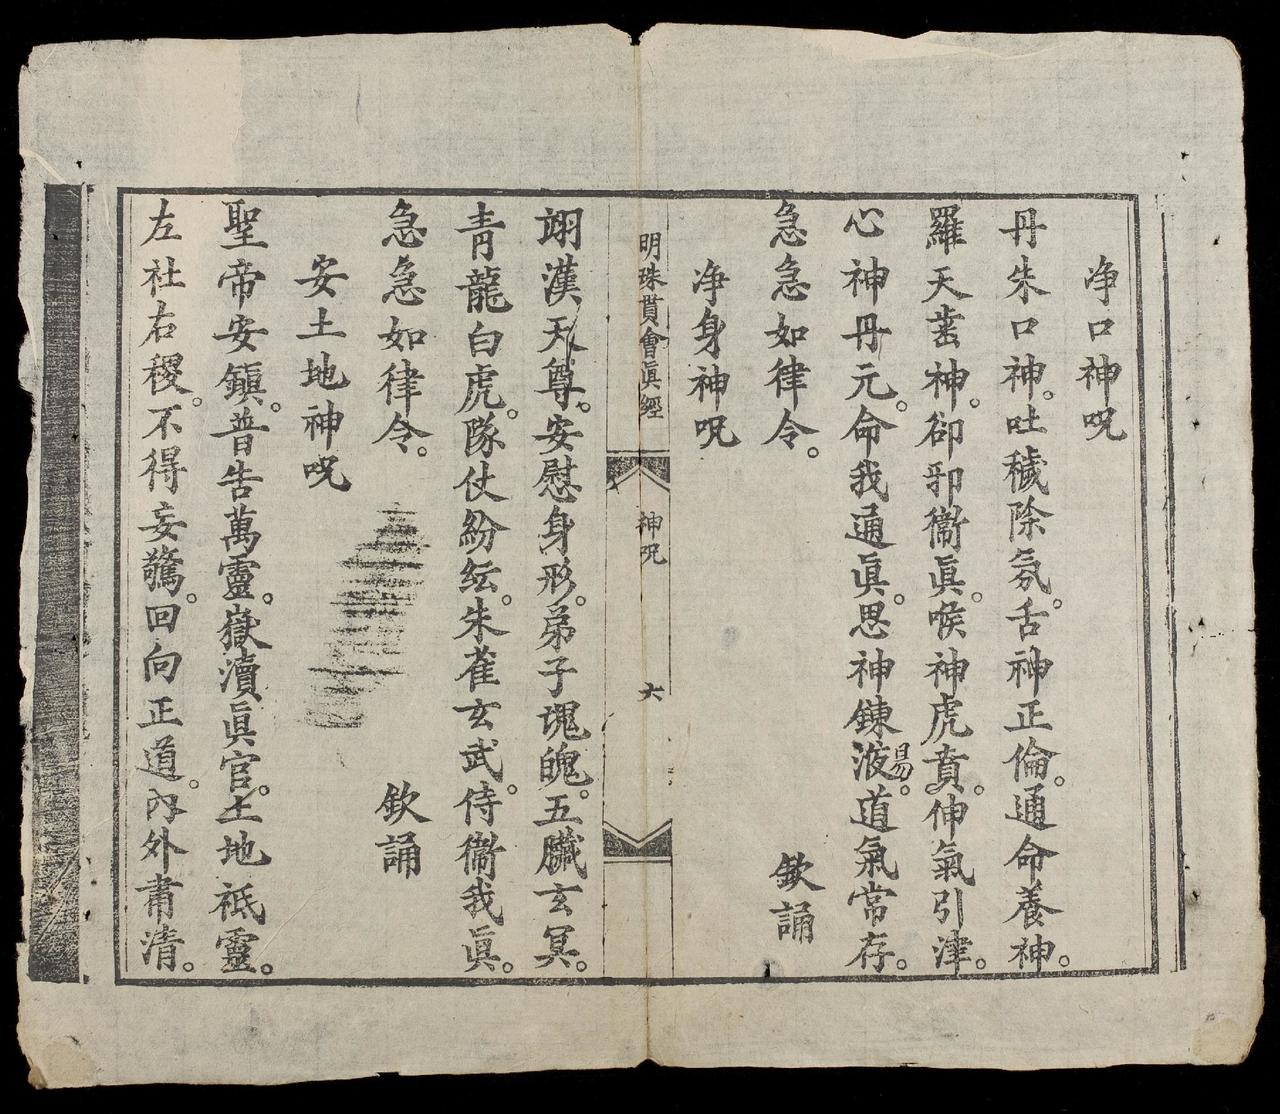 净口神呪
丹朱口神。吐穢除氛。舌神正倫。通命養神。
羅天齒神。卻邪衞眞。喉神虎賁。伸氣引津。
心神丹元。命我通眞。思神錬液。道氣常存。
昜
急急如律令。 欽誦
净身神呪
明珠貫會眞經 神呪 六
翊漢天尊。安慰身形。弟子魂魄。五臟玄冥。
青龍白虎。隊仗紛纭。朱雀玄武。侍衞我眞。
急急如律令。 欽誦
安土地神呪
聖帝安鎭。普告萬靈。嶽瀆眞官。土地祗靈。
左社右稷。不得妄驚。回向正道。內外肅清。